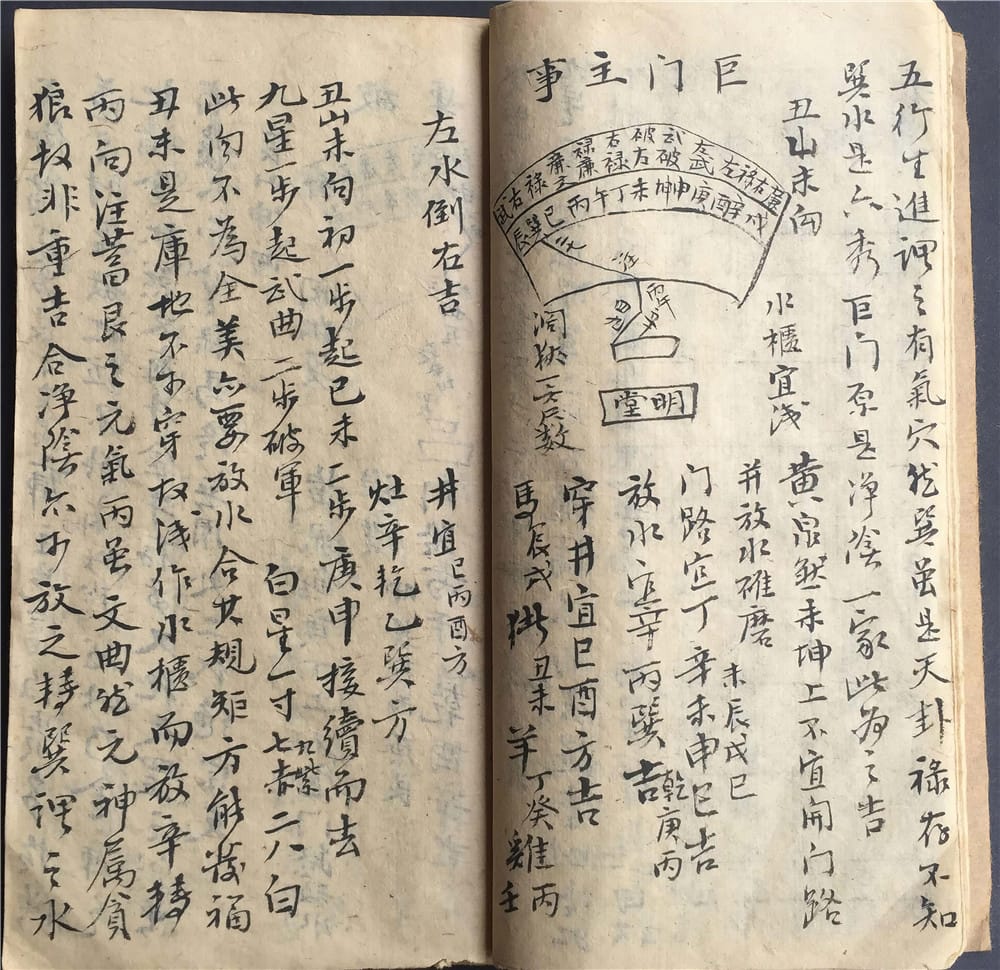 五行生進謂之有氣穴然巽虽是天卦禄存不知
巽水是六秀巨门原是净陰一家此为之吉
巨门主事
丑山未向
水櫃宜浅
廉左右禄左武左武破破左右禄禄廉廉文禄右武
戌辛酉庚申坤未丁午丙巳巽辰
明堂
黄泉然未坤上不宜開门路
并放水碓磨未辰戌巳
门路宜丁辛未申巳吉
放水宜辛丙巽吉乾庚丙
穿井宜巳酉方吉
馬辰戌
丑未羊丁癸雞丙壬
左水倒右吉
井宜巳丙酉方
灶辛乾乙巽方
丑山未向初一步起巳未二步庚申接續而去
九星一步起武曲二步破軍 白星一寸七赤九紫二八白
此向不為全美亦要放水合其規矩方能发福
丑未是庫地不可穿故浅作水櫃而放辛轉
丙向注蓄艮之元氣丙虽文曲然元神属貪
狼故非重吉合净陰亦可放之轉巽謂之水